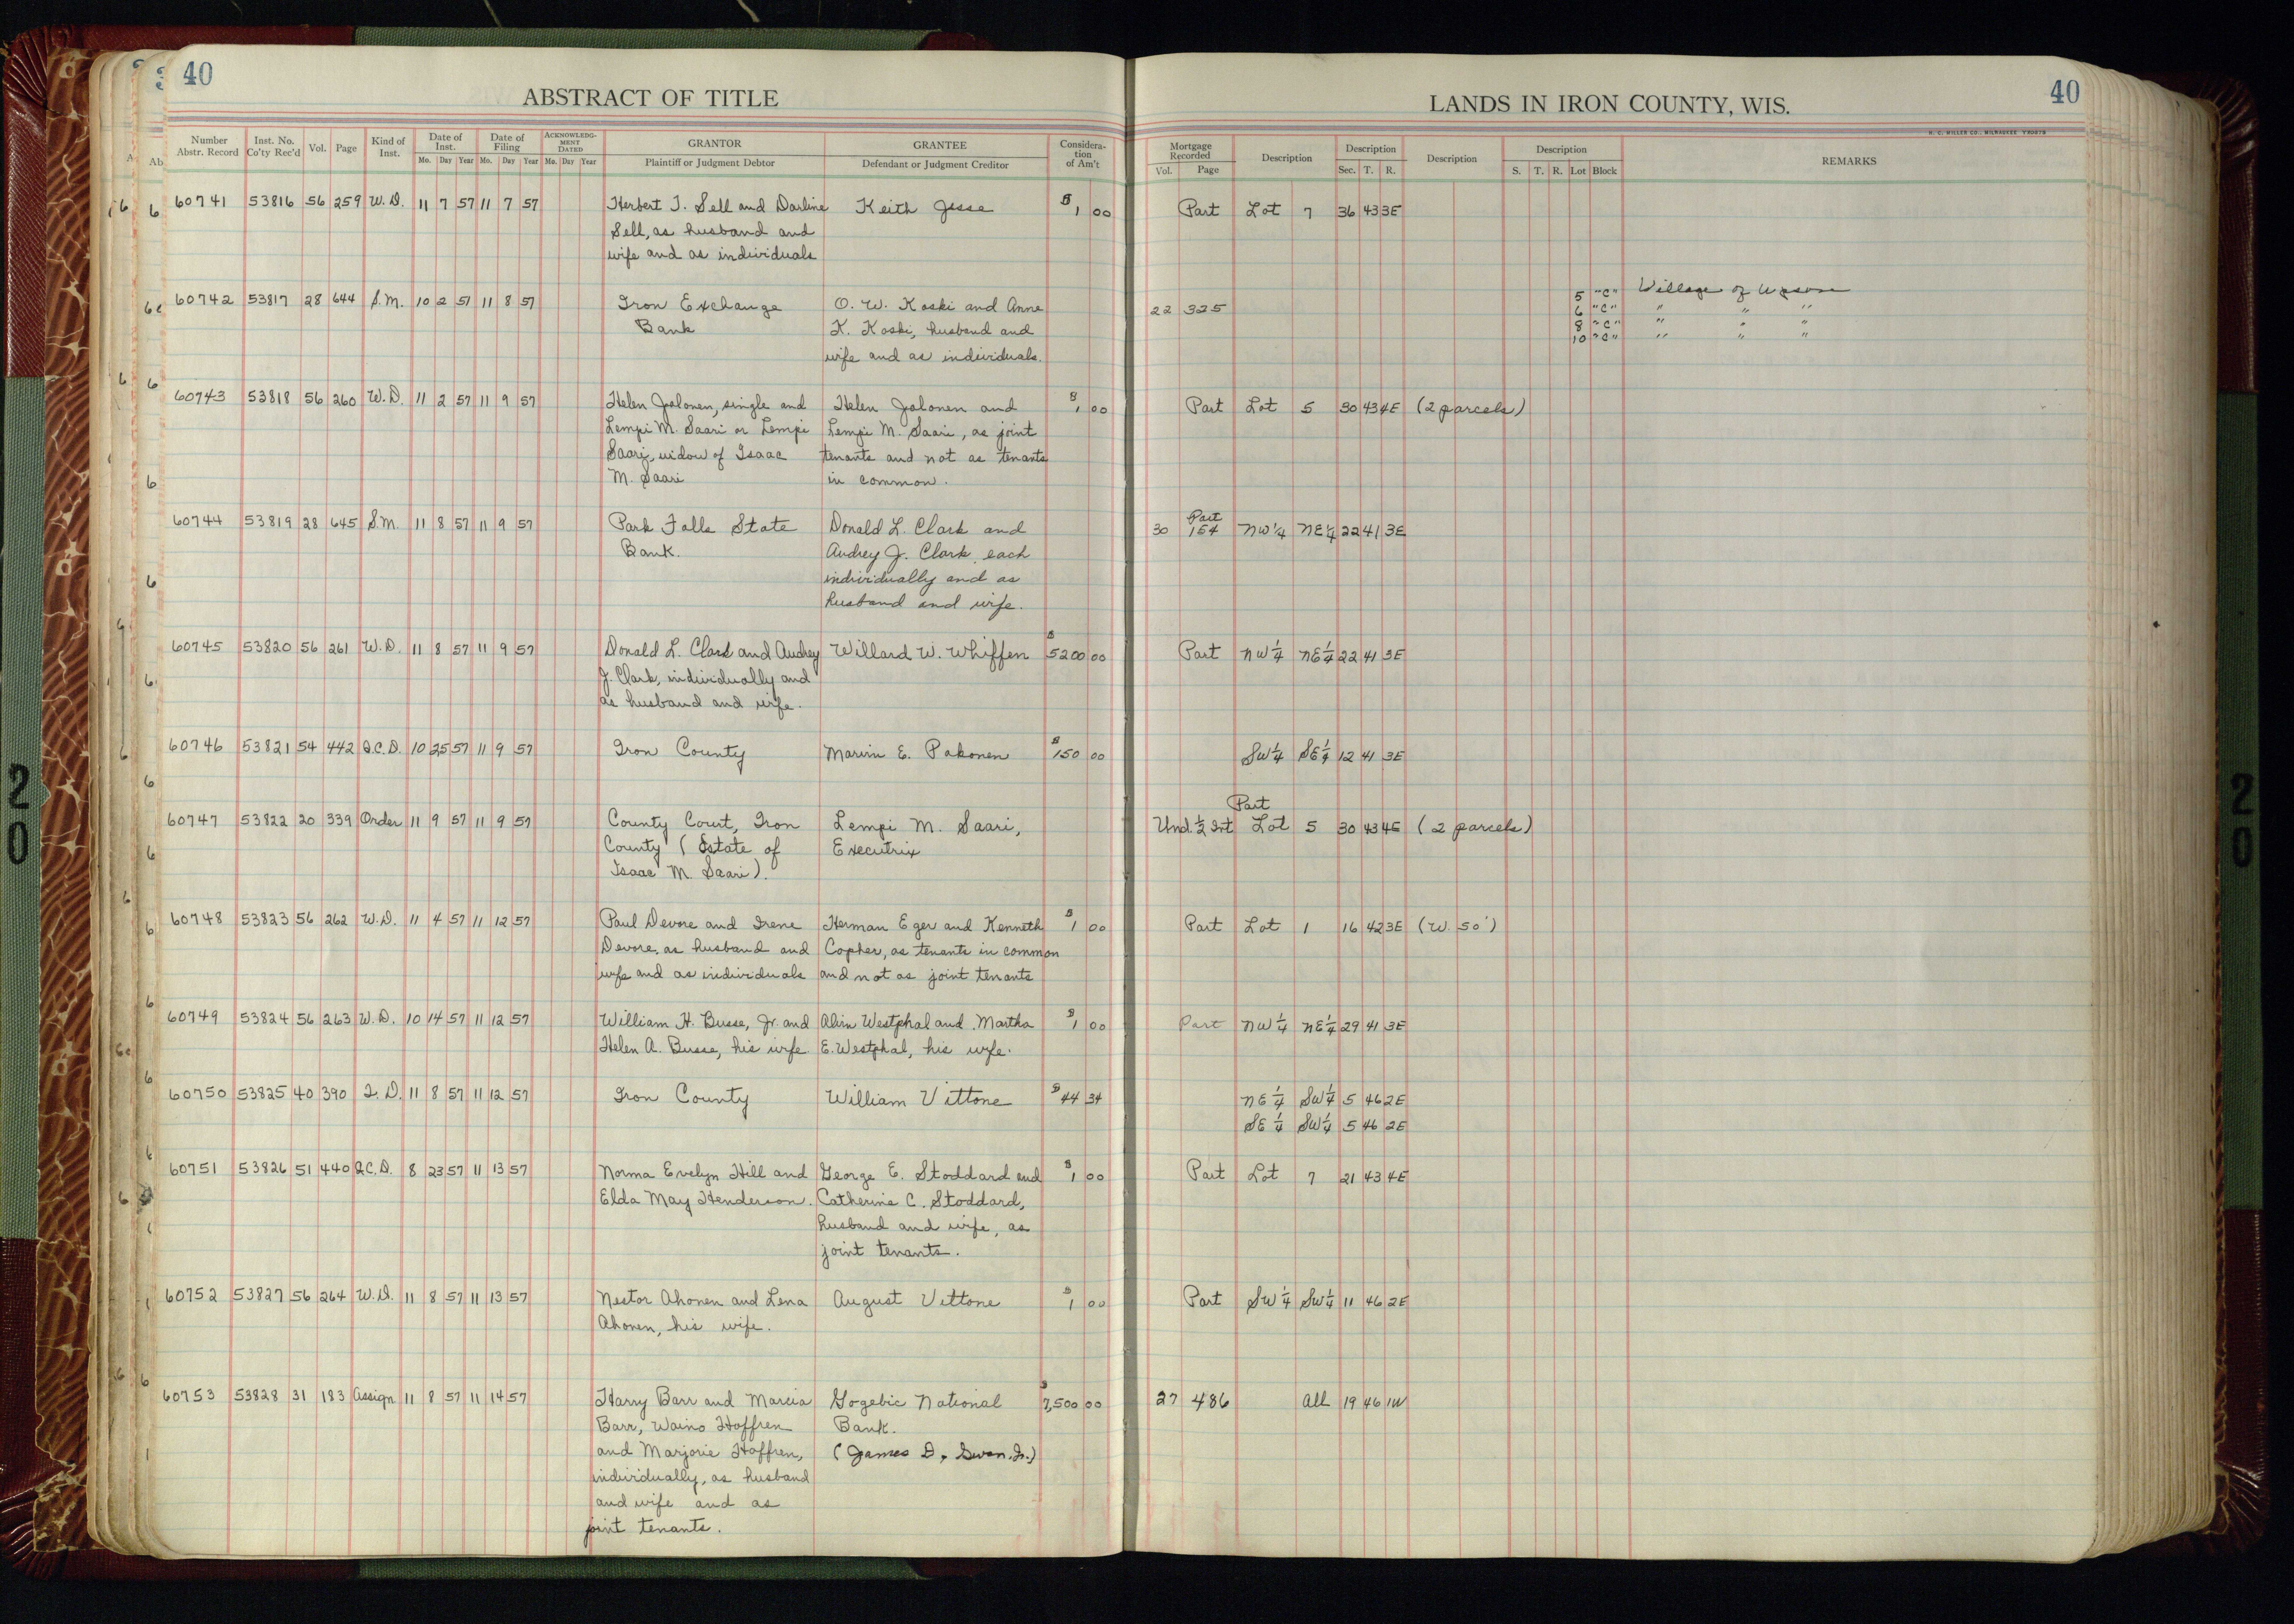 40
ABSTRACT OF TITLE
LANDS IN IRON COUNTY, WIS.
40
H. C. MILLER CO., MILWAUKEE
Number Abstr. Record | Inst. No. Co'ty Rec'd | Vol. | Page | Kind of Inst. | Date of Inst. Mo. Day Year | Date of Filing Mo. Day Year | ACKNOWLEDGMENT DATED Mo. Day Year | GRANTOR Plaintiff or Judgment Debtor | GRANTEE Defendant or Judgment Creditor | Consideration of Am't | Mortgage Recorded Vol. Page | Description | Description Sec. T. R. | Description | Description S. T. R. Lot Block | REMARKS
60741 53816 56 259 W.D. 11 7 57 11 7 57 Herbert T. Sell and Darline Keith Jesse $1 00 Part Lot 7 36 43 3E
Sell, as husband and
wife and as individuals
60742 53817 28 644 S.M. 10 2 57 11 8 57 Iron Exchange O. W. Koski and Anne 22 325 5 "C" Village of Upson
Bank K. Koski, husband and 6 "C" " " "
wife and as individuals. 8 "C" " " "
10 "C" " " "
60743 53818 56 260 W.D. 11 2 57 11 9 57 Helen Jalonen, single and Helen Jalonen and $1 00 Part Lot 5 30 43 4E (2 parcels)
Lempi M. Saari or Lempi Lempi M. Saari, as joint
Saari, widow of Isaac tenants and not as tenants
M. Saari in common.
60744 53819 28 645 S.M. 11 8 57 11 9 57 Park Falls State Donald L. Clark and 30 154 Part NW¼ NE¼ 22 41 3E
Bank. Audrey J. Clark, each
individually and as
husband and wife.
60745 53820 56 261 W.D. 11 8 57 11 9 57 Donald L. Clark and Audrey Willard W. Whiffen $5200 00 Part NW¼ NE¼ 22 41 3E
J. Clark, individually and
as husband and wife.
60746 53821 54 442 Q.C.D. 10 25 57 11 9 57 Iron County Marvin E. Pakonen $150 00 SW¼ SE¼ 12 41 3E
60747 53822 20 339 Order 11 9 57 11 9 57 County Court, Iron Lempi M. Saari, Und. ½ Int Part Lot 5 30 43 4E (2 parcels)
County (Estate of Executrix
Isaac M. Saari).
60748 53823 56 262 W.D. 11 4 57 11 12 57 Paul Devore and Irene Herman Eger and Kenneth $1 00 Part Lot 1 16 42 3E (W. 50')
Devore, as husband and Copher, as tenants in common
wife and as individuals and not as joint tenants
60749 53824 56 263 W.D. 10 14 57 11 12 57 William H. Busse, Jr. and Alvin Westphal and Martha $1 00 Part NW¼ NE¼ 29 41 3E
Helen A. Busse, his wife. E. Westphal, his wife.
60750 53825 40 390 T.D. 11 8 57 11 12 57 Iron County William Vittone $44 34 NE¼ SW¼ 5 46 2E
SE¼ SW¼ 5 46 2E
60751 53826 51 440 Q.C.D. 8 23 57 11 13 57 Norma Evelyn Hill and George E. Stoddard and $1 00 Part Lot 7 21 43 4E
Elda May Henderson. Catherine C. Stoddard,
husband and wife, as
joint tenants.
60752 53827 56 264 W.D. 11 8 57 11 13 57 Nestor Ahonen and Lena August Vittone $1 00 Part SW¼ SW¼ 11 46 2E
Ahonen, his wife.
60753 53828 31 183 Assign 11 8 57 11 14 57 Harry Barr and Marcia Gogebic National $7,500 00 27 486 All 19 46 1W
Barr, Waino Hoffren Bank.
and Marjorie Hoffren, (James D. Swan, Jr.)
individually, as husband
and wife and as
joint tenants.
20
20